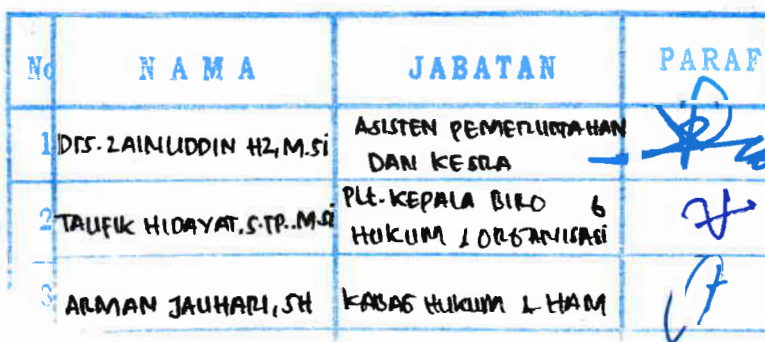 No NAMA JABATAN PARAF
1 Drs. ZAINUDDIN HZ, M.Si ASISTEN PEMERINTAHAN
DAN KESRA
2 TAUFIK HIDAYAT, S.TP., M.Si PLt. KEPALA BIRO
HUKUM & ORGANISASI
3 ARMAN JAUHARI, SH KABAG HUKUM & HAM